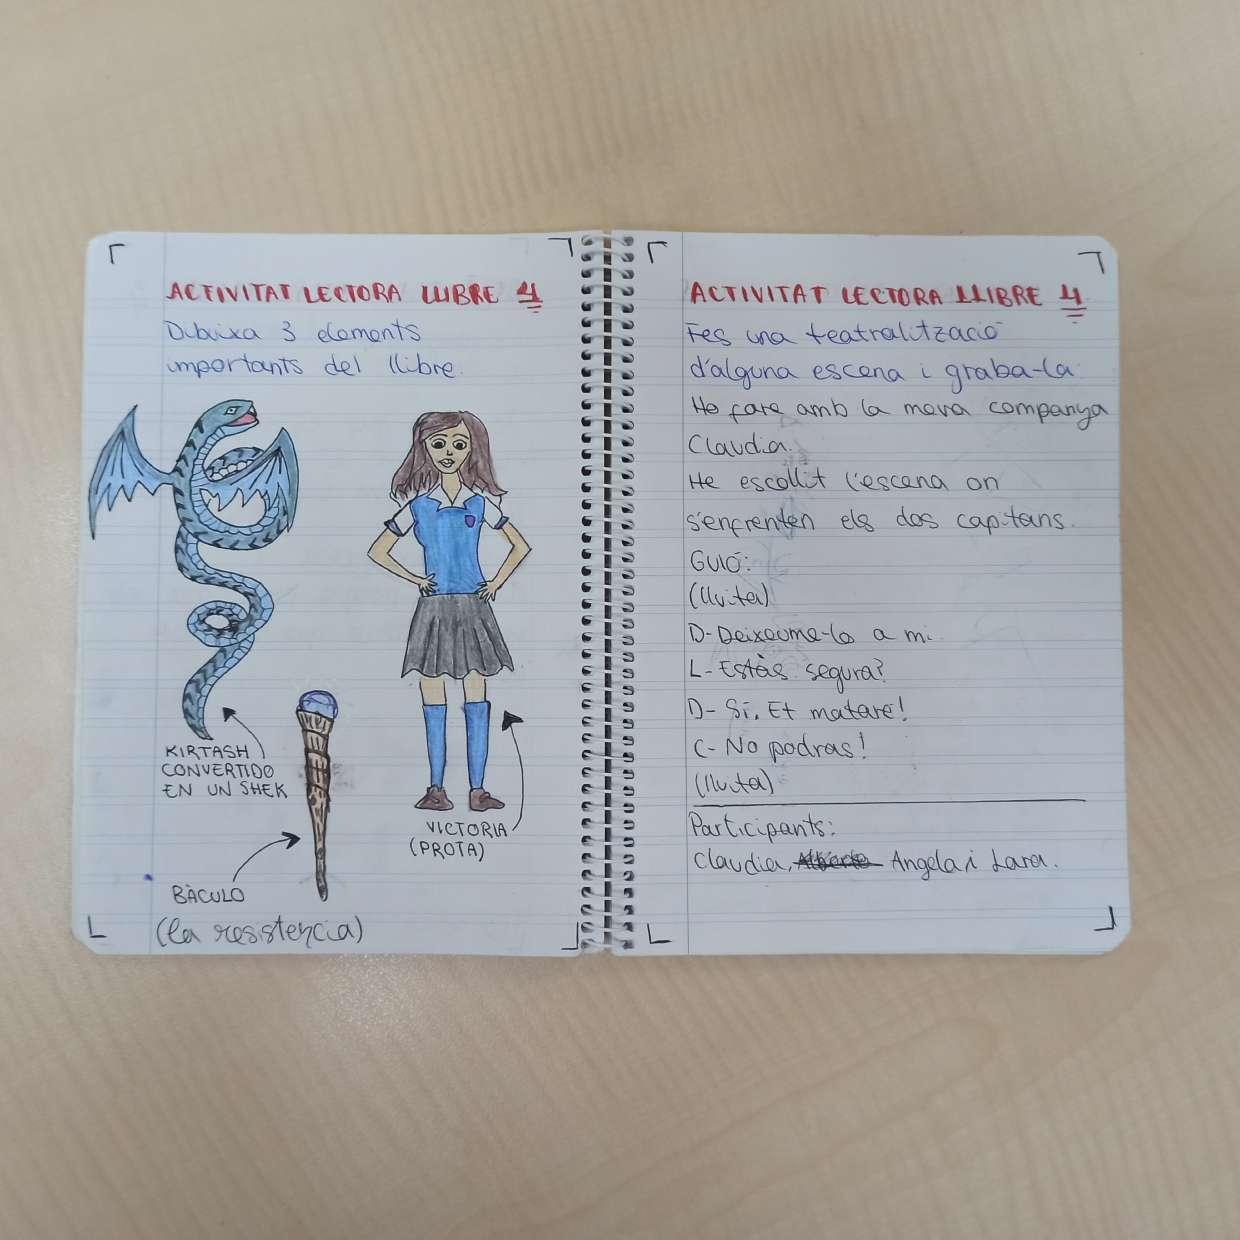 ACTIVITAT LECTORA LLIBRE 4
Dibuixa 3 elements
importants del llibre.
KIRTASH
CONVERTIDO
EN UN SHEK
VICTORIA
(PROTA)
BÀCULO
(la resistencia)
ACTIVITAT LECTORA LLIBRE 4
Fes una teatralització
d'alguna escena i graba-la:
Ho fare amb la meva companya
Claudia.
He escollit l'escena on
s'enfrenten els dos capitans.
GUIÓ:
(lluita)
D-Deixeume-lo a mi.
L-Estàs segura?
D- Sí, Et mataré!
C- No podras!
(lluita)
Participants:
Claudia, Angela i Lara.